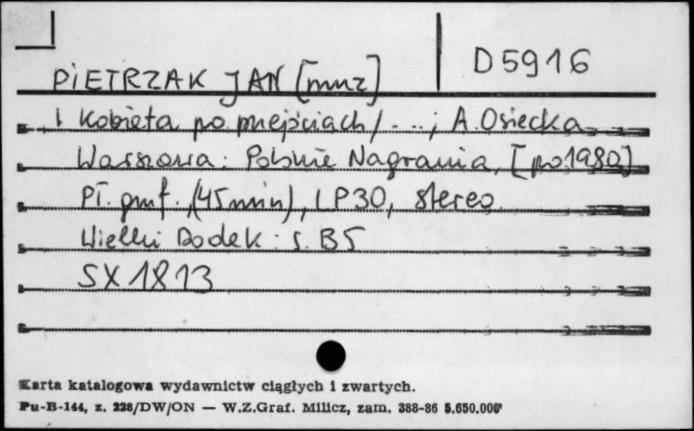 D5916
PIETRZAK JAN [muz]
1 Kobieta po przejściach / ... ; A. Osiecka
Warszawa : Polskie Nagrania, [po 1980]
Pł. gmf. (45 min), LP30, stereo
Wielki Dodek : s. B5
SX 1813
Karta katalogowa wydawnictw ciągłych i zwartych.
Pu-B-144, z. 228/DW/ON — W.Z.Graf. Milicz, zam. 388-86 5.650.000